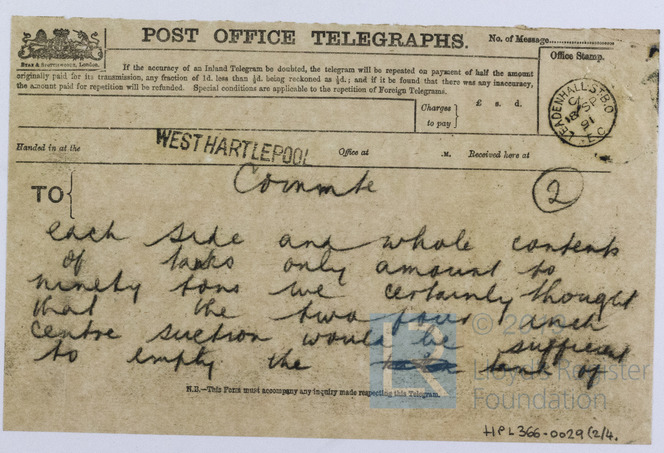 POST OFFICE TELEGRAPHS.
No. of Message
If the accuracy of an Inland Telegram be doubted, the telegram will be repeated on payment of half the amount
originally paid for its transmission, any fraction of 1d. less than ½d. being reckoned as ½d.; and if it be found that there was any inaccuracy,
the amount paid for repetition will be refunded. Special conditions are applicable to the repetition of Foreign Telegrams.
Office Stamp.
LEADENHALL ST B.O
C
SP
91
E.C.
Charges to pay
£ s. d.
Handed in at the
WEST HARTLEPOOL
Office at
.M.
Received here at
TO
Commte
2
each side and whole contents
of tanks only amount to
ninety tons we certainly thought
that the two four inch
centre suction would be sufficient
to empty the tank of
N.B.—This Form must accompany any inquiry made respecting this Telegram.
Lloyd's Register
Foundation
HPL366-0029(2/4.